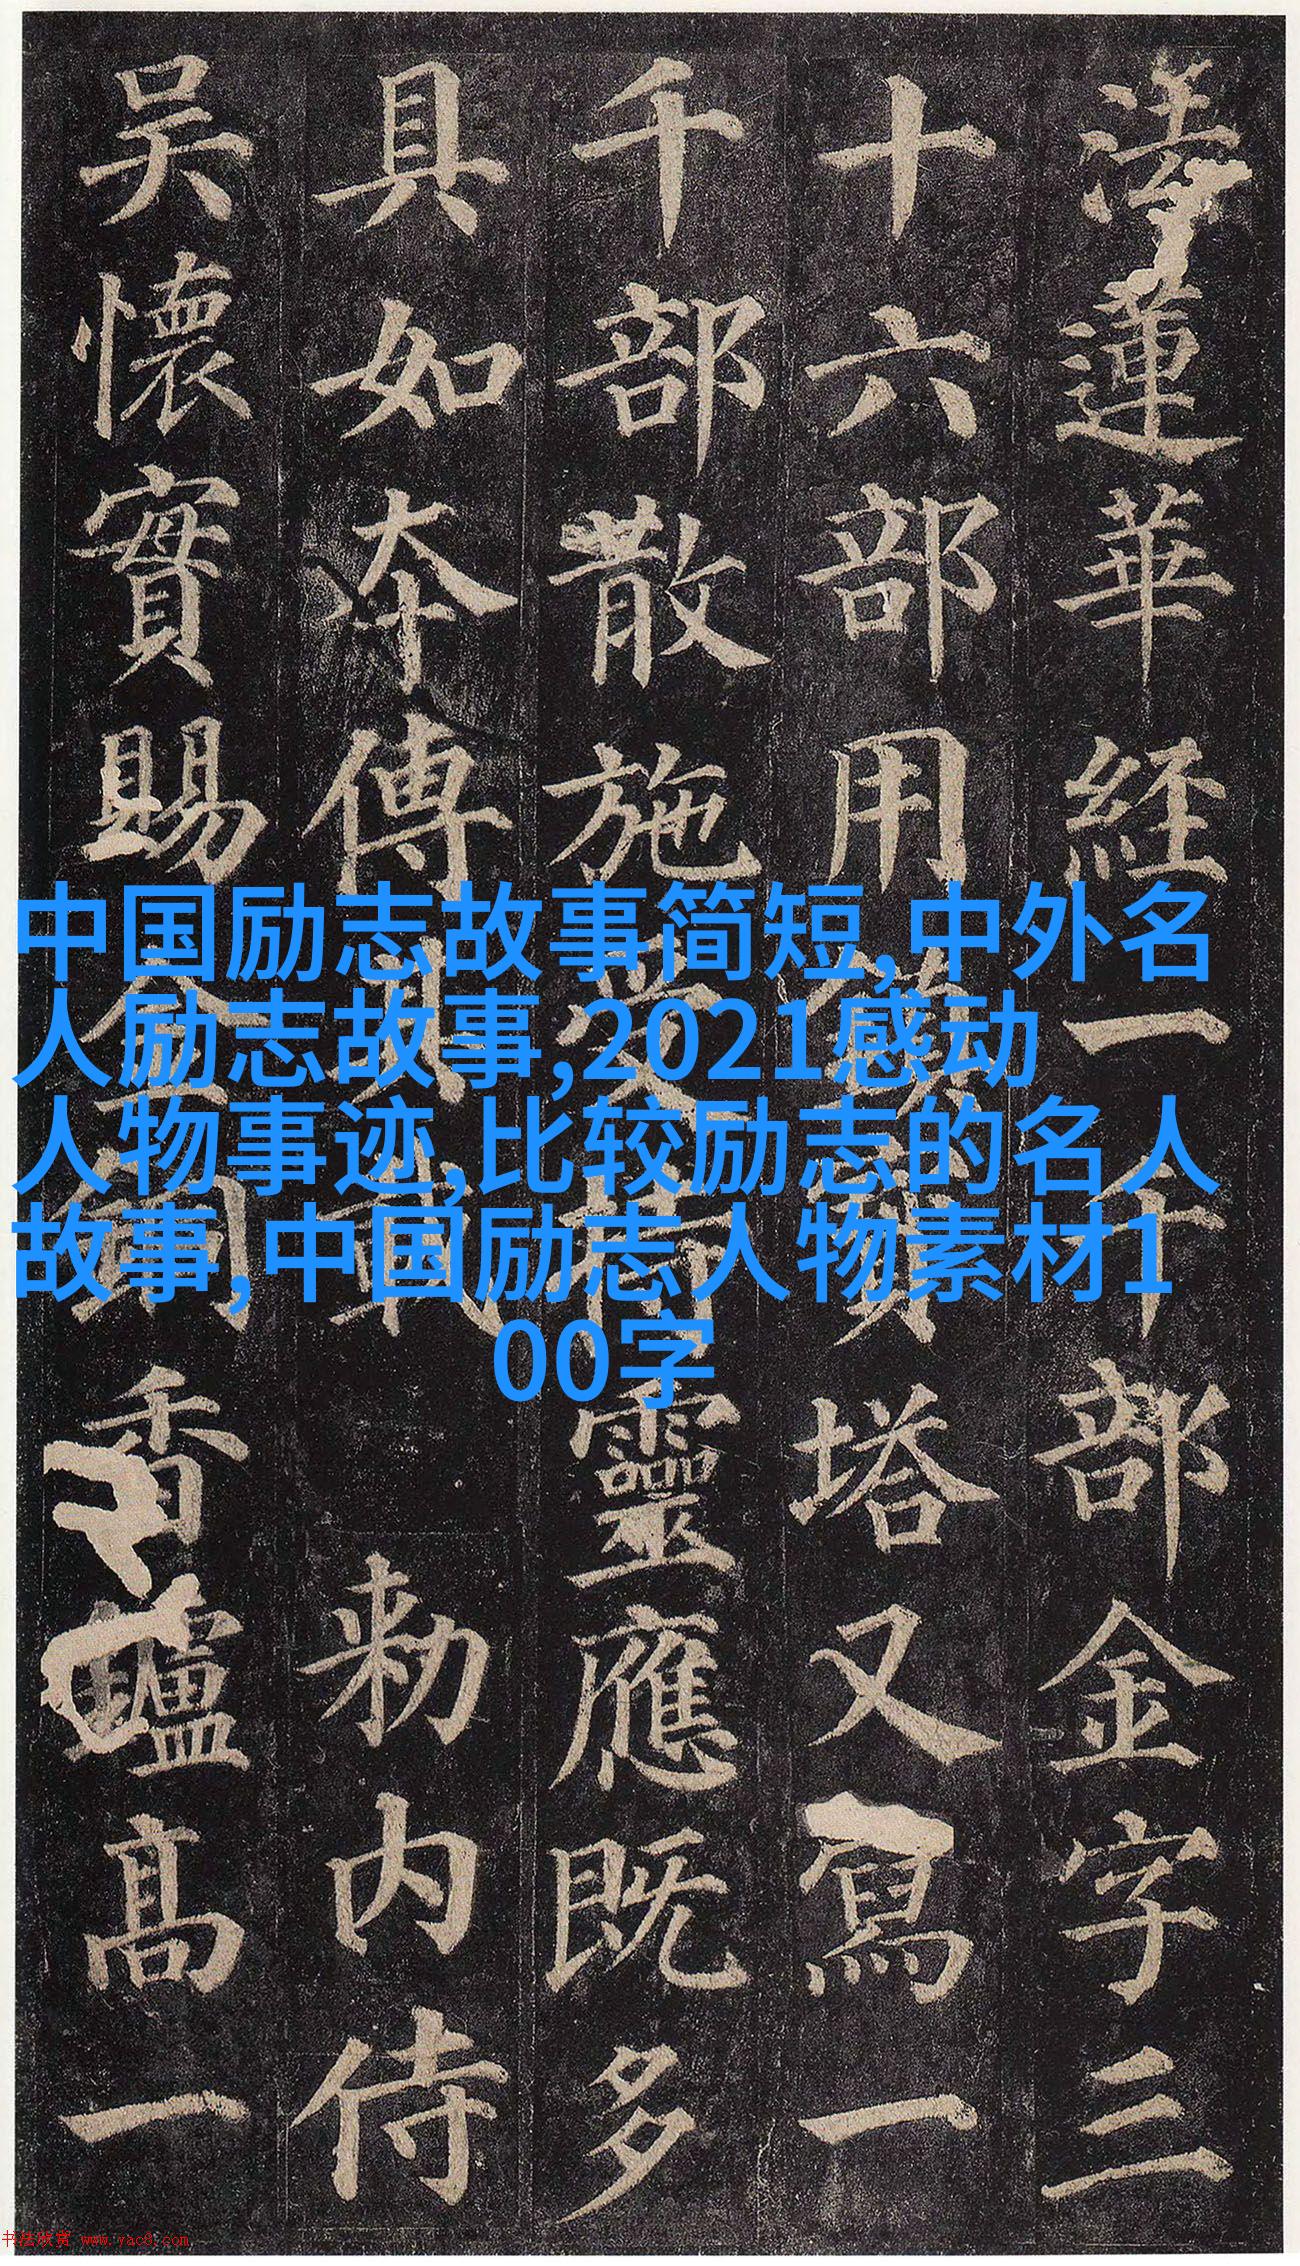 法蓮華經一千部金字三
十六部用鎮寶塔又寫一
千部散施受持靈應既多
具如本傳其載勑内侍
吴懷實賜金銅香爐高一
中国励志故事简短,中外名
人励志故事,2021感动
人物事迹,比较励志的名人
故事,中国励志人物素材1
00字
书法欣赏 www.yac8.com